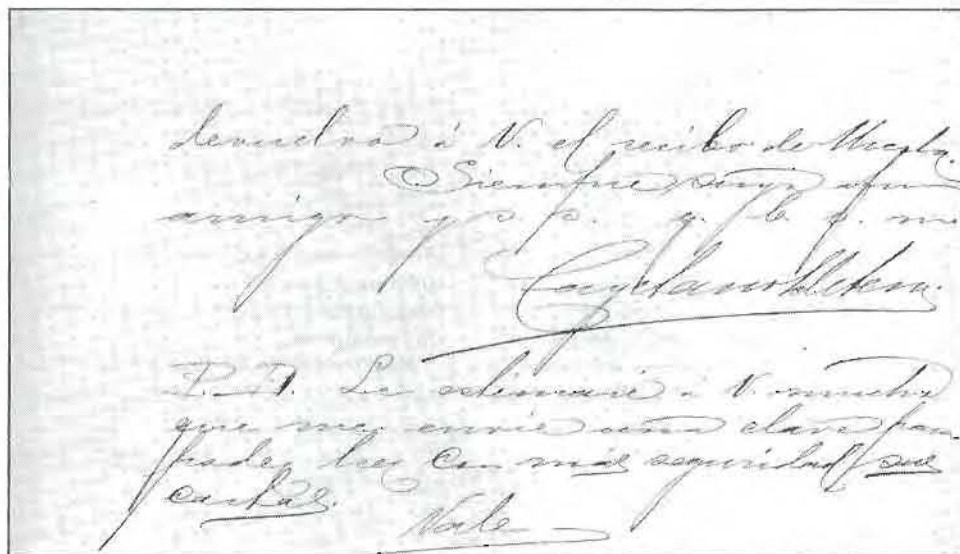 devuelva á V. el recibo de
Siempre suyo afmo
amigo y s. s. q. b. s. m.
Cayetano
P. D. Le estimaré á V. mucho
que me envie una clave para
poder leer con más seguridad sus
cartas.
Vale